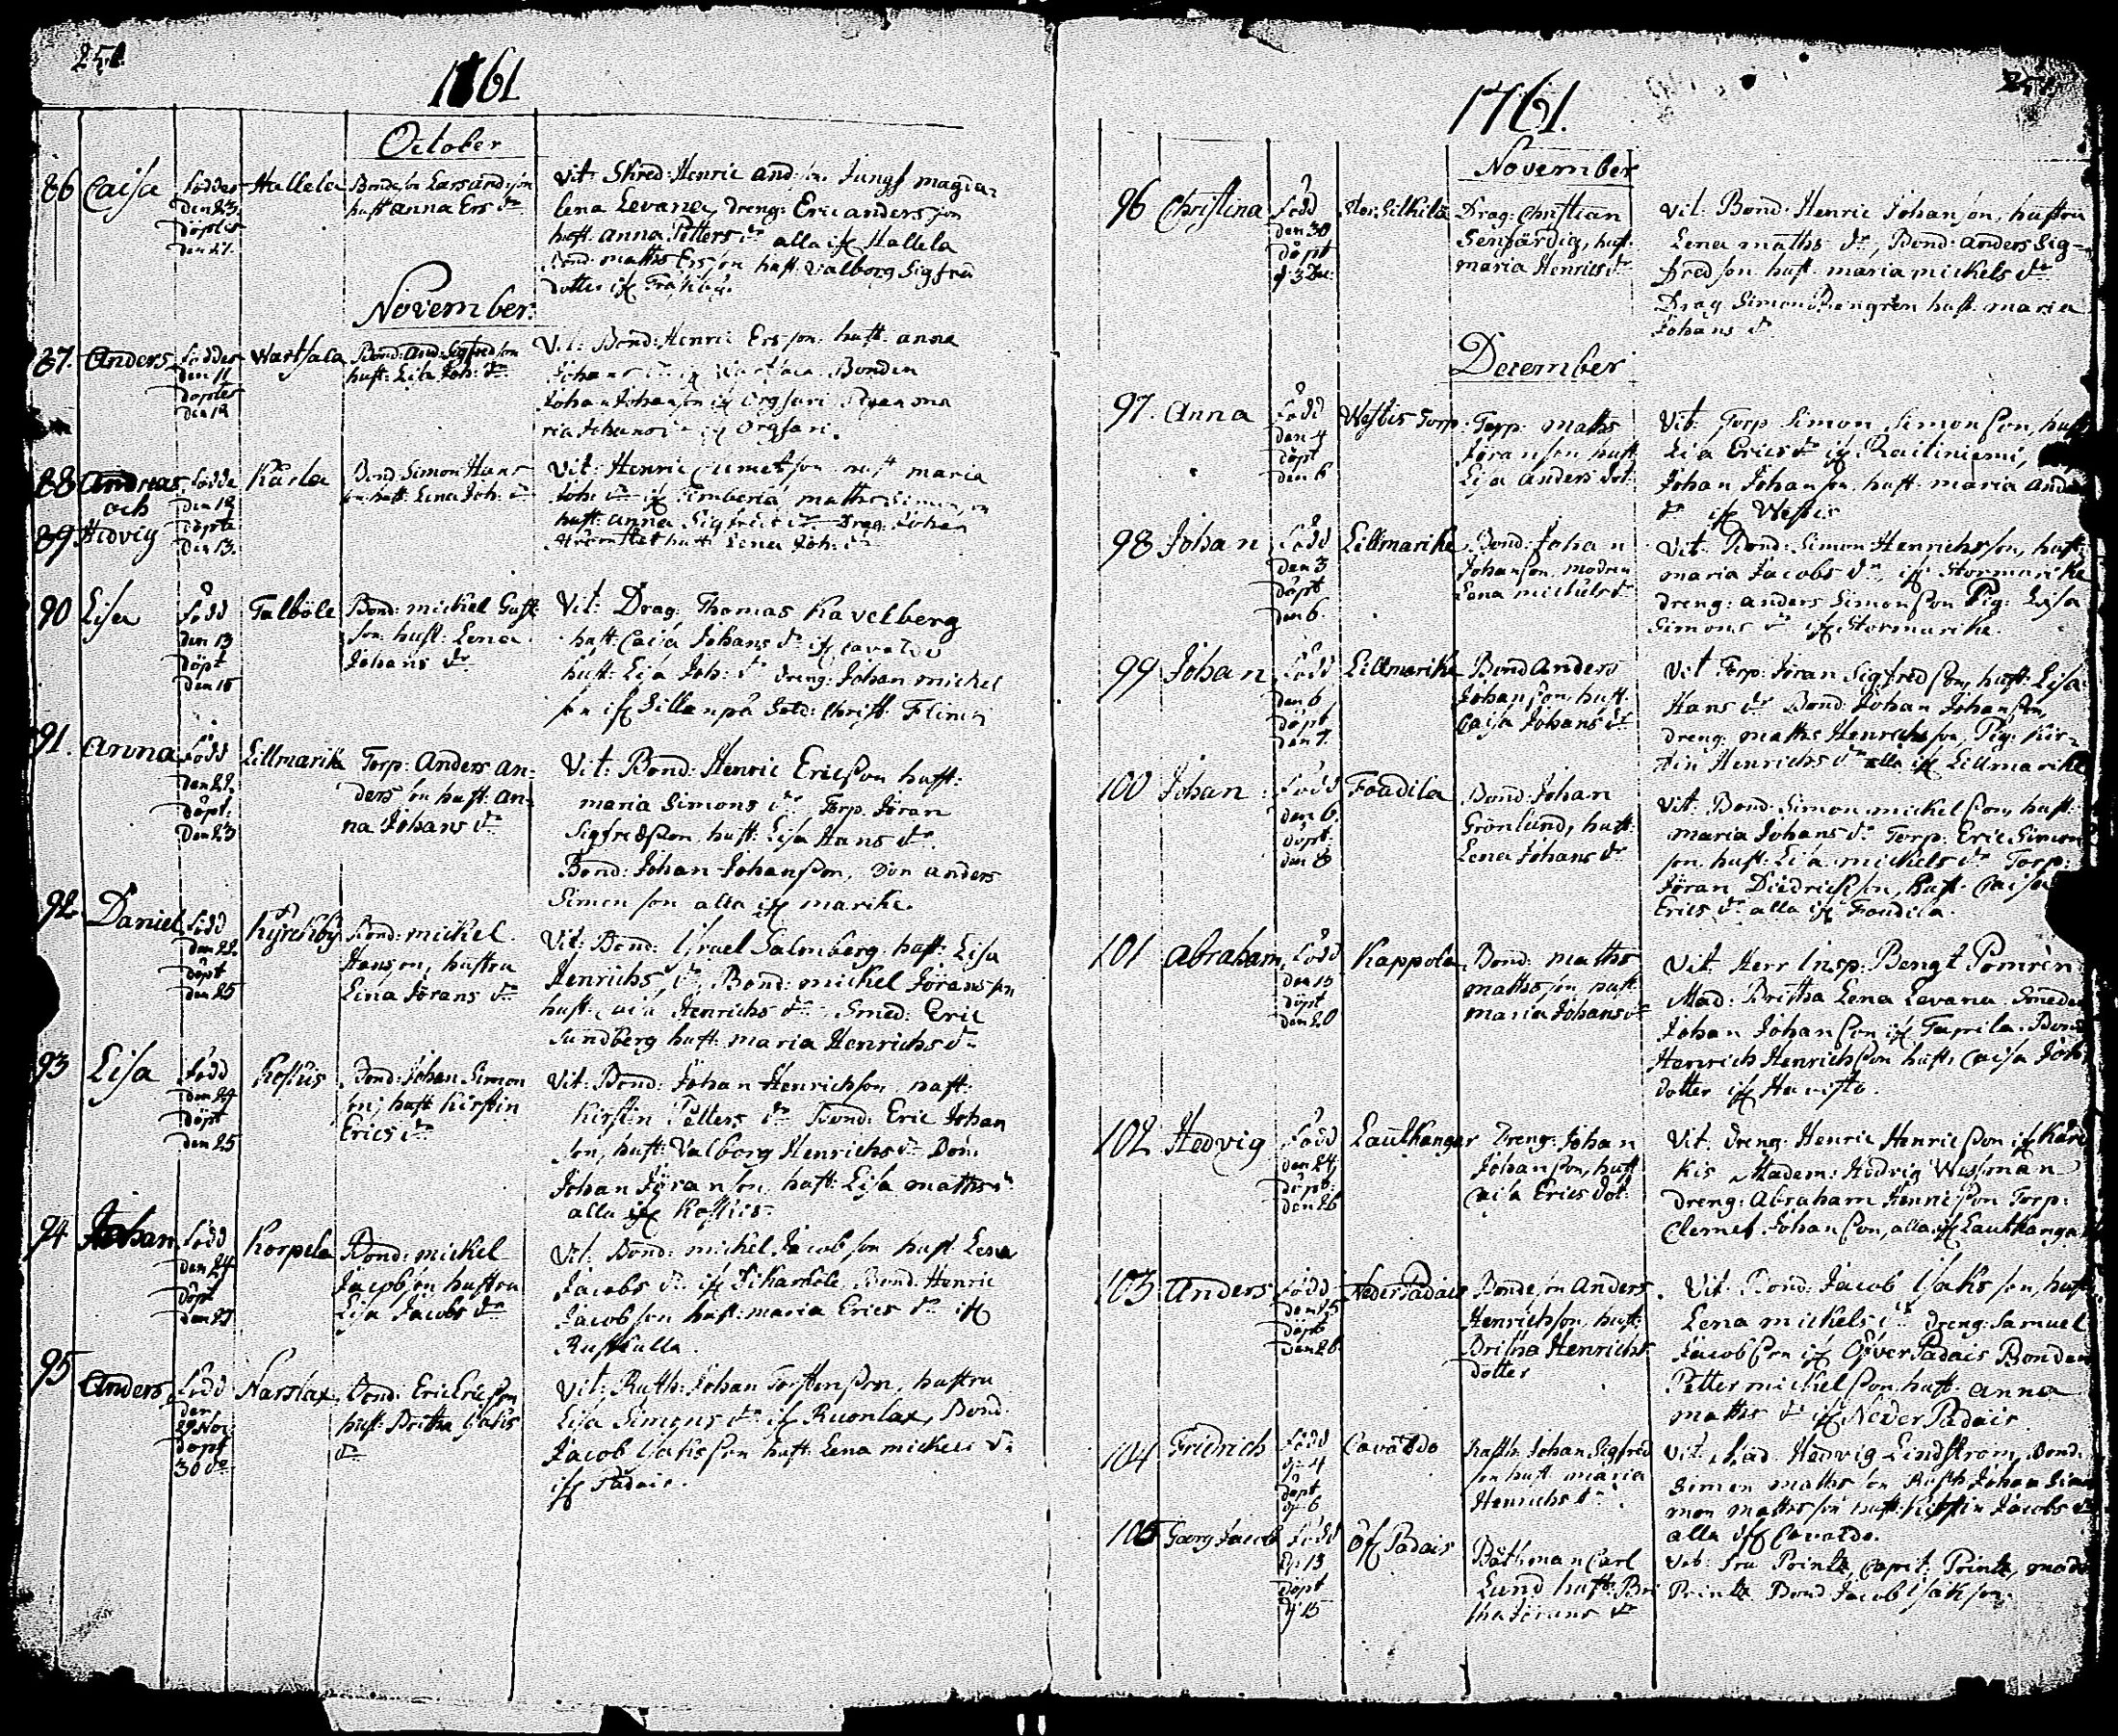 250
1761
October
86 Caisa
Födder
den 23.
döptes
den 27.
Hallela
Bondeson Lars andsson
hust anna Ers dr
Vit: Skred: Henric and: son Jungf magda-
lena Levana, dreng: Eric andersson
hust. anna Petters dr alla if Hallela
Bond: matts Ersson hust. valborg Sigfrid
dotter if
November.
87. Anders
Födder
den 11
döptes
den 12
Wartsala
Bond: And: Sigfredson
hust: Lisa Joh: dr
Vit: Bond: Henric Ersson. hust. anna
Johans dr if Wartsala Bonden
Johan Johansson if
ria Johans dr if
88 Andreas
och
89 Hedvig
födde
den 12
döpte
den 13.
Karla
Bond Simon Hans
son hust: Lena Joh: dr
Vit: Henric Clemetson hust maria
Joh: dr if matts Simonson
hust: anna Sigfrids dr Drag: Johan
hust: Lena Joh: dr
90 Lisa
Född
den 13
döpt
den 15
Talböle
Bond: mickel Gust:
son hust: Lena
Johans dr
Vit: Drag: Thomas Kavelberg
hust: Caisa Johans dr if Cavaldo
hust: Lisa Joh: dr dreng: Johan mickel
son if Sillanpä Sold: Christ: Flinck
91. Anna
Född
den 22.
döpt:
den 23
Lillmarike
Torp: Anders An-
dersson hust: An-
na Johans dr
Vit: Bond: Henric Ericsson hust:
maria Simons dr Torp. Jöran
Sigfredsson hust: Lisa Hans dr
Bond: Johan Johansson, Son anders
Simonson alla if marike.
92. Daniel
Född
den 22.
döpt
den 25
Kyrckby
Bond: mickel
Hansson, hustru
Lina Jörans dr
Vit: Bond: Israel Salmberg hust: Lisa
Henrichs dr, Bond: mickel Jöransson
hust: Caisa Henrichs dr Smed: Eric
Sundberg hust: maria Henrichs dr
93 Lisa
Född
den 24
döpt
den 25
Koskis
Bond: Johan Simon
son; hust Kirstin
Erics dr
Vit: Bond: Johan Henrichson, hust:
Kirstin Petters dr Bond: Eric Johan
son, hust: Valborg Henrichs dr Bon:
Johan Jöranson hust: Lisa matts dr
alla if Koskis
94 Johan
Född
den 24
döpt
den 27
Korpela
Bond: mickel
Jacobson hustru
Lisa Jacobs dr
Vit: Bond: mickel Jacobson hust Lena
Jacobs dr if Bond: Henric
Jacobson hust: maria Erics dr if
Ruskulla.
95 Anders
Född
den
29 Nov:
döpt
30 dr
Narslax
Bond: Eric Ericsson
hust: Britha Isaks
dr
Vit: Rusth: Johan Torstensson, hustru
Lisa Simons dr if Ruonlax, Bond:
Jacob Isaksson hust: Lena mickels dr
if Padais.
1761.
November
96 Christina
Född
den 30
döpt
d 3 Dec:
Stor: Silkilä
Drag: Christian
Senfärdig, hust:
maria Henrics dr
Vit: Bond: Henric Johansson, hustru
Lena matts dr, Bond: anders Sig-
fredson hust maria mickels dr
Drag Simon Bengren hust maria
Johans dr
December
97. Anna
Född
den 4
döpt
den 6
Westis Torp
Torp: matts
Jöransson hust
Lisa Anders dot:
Vit: Torp Simon Simonsson, hust
Lisa Erics dr if Railiniemi,
Johan Johansson. hust. maria Anders
dr if Westis
98 Johan
Född
den 3
döpt
den 6.
Lillmarike
Bond: Johan
Johansson, modren
Lena mickels dr
Vit: Bond: Simon Henrichsson, hust:
maria Jacobs dr if Stormarike
dreng: anders Simonsson Pig: Lisa
Simons dr if Stormarike.
99 Johan
Född
den 6
döpt
den 7.
Lillmarike
Bond Anders
Johansson, hust
Caisa Johans dr
Vit Torp: Jöran Sigfredsson, hust: Lisa
Hans dr Bond: Johan Johansson,
dreng: matts Henrichsson, Pig: Kir-
stin Henrichs dr alla if Lillmarike
100 Johan
Född
den 6
döpt
den 8
Foudila
Bond: Johan
Grönlund, hust:
Lena Johans dr
Vit: Bond: Simon mickelsson, hust:
maria Johans dr Torp: Eric Simon
son hust: Lisa mickels dr Torp:
Jöran Diedricksson, hust. Caisa
Erics dr alla if Foudila.
101 Abraham
Född
den 15
döpt
den 20
Kappola
Bond: matts
mattsson hust
maria Johans dr
Vit: Herr Insp: Bengt Pomrèn
Mad: Britha Lena Levana, Smeden
Johan Johansson if Tasrila. Bond
Henrich Henrichsson hust: Caisa Joh
dotter if Havisto.
102 Hedvig
Född
den 24
döpt:
den 26
Lautkangar
Dreng: Johan
Johansson, hust
Caisa Erics dot:
Vit: dreng: Henric Henricsson if Kårc
kis Madem: Hedvig Wessman
dreng: Abraham Henricsson Torp:
Clemet Johansson, alla if Lautkanga
103 Anders
Född
den 25
döpt
den 26
Neder Padais
Bondeson Anders
Henrichson, hust:
Britha Henrichs
dotter
Vit: Bond: Jacob Isaksson, hust
Lena mickels dr dreng: Samuel
Jacobsson if Öfver Padais Bonden
Petter mickelsson hust: anna
matts dr if Neder Padais
104 Fridrich
Född
d 4
döpt
d 6
Cavaldo
Rusth: Johan Sigfred
son hust maria
Henrichs dr
Vit. Hedvig Lindström, Bond:
Simon matts son Rusth: Johan Si
mon mattsson hust: Kirstin Jacobs dr
alla if Cavaldo.
105 Georg Jacob
Född
d 13
döpt
d 15
Öf Padais
Båthsman Carl
Lund hustr: Bri
tha Jörans dr
Vit: fru Printz, Capit: Printz, mads
Printz Bond Jacob Isaksson.